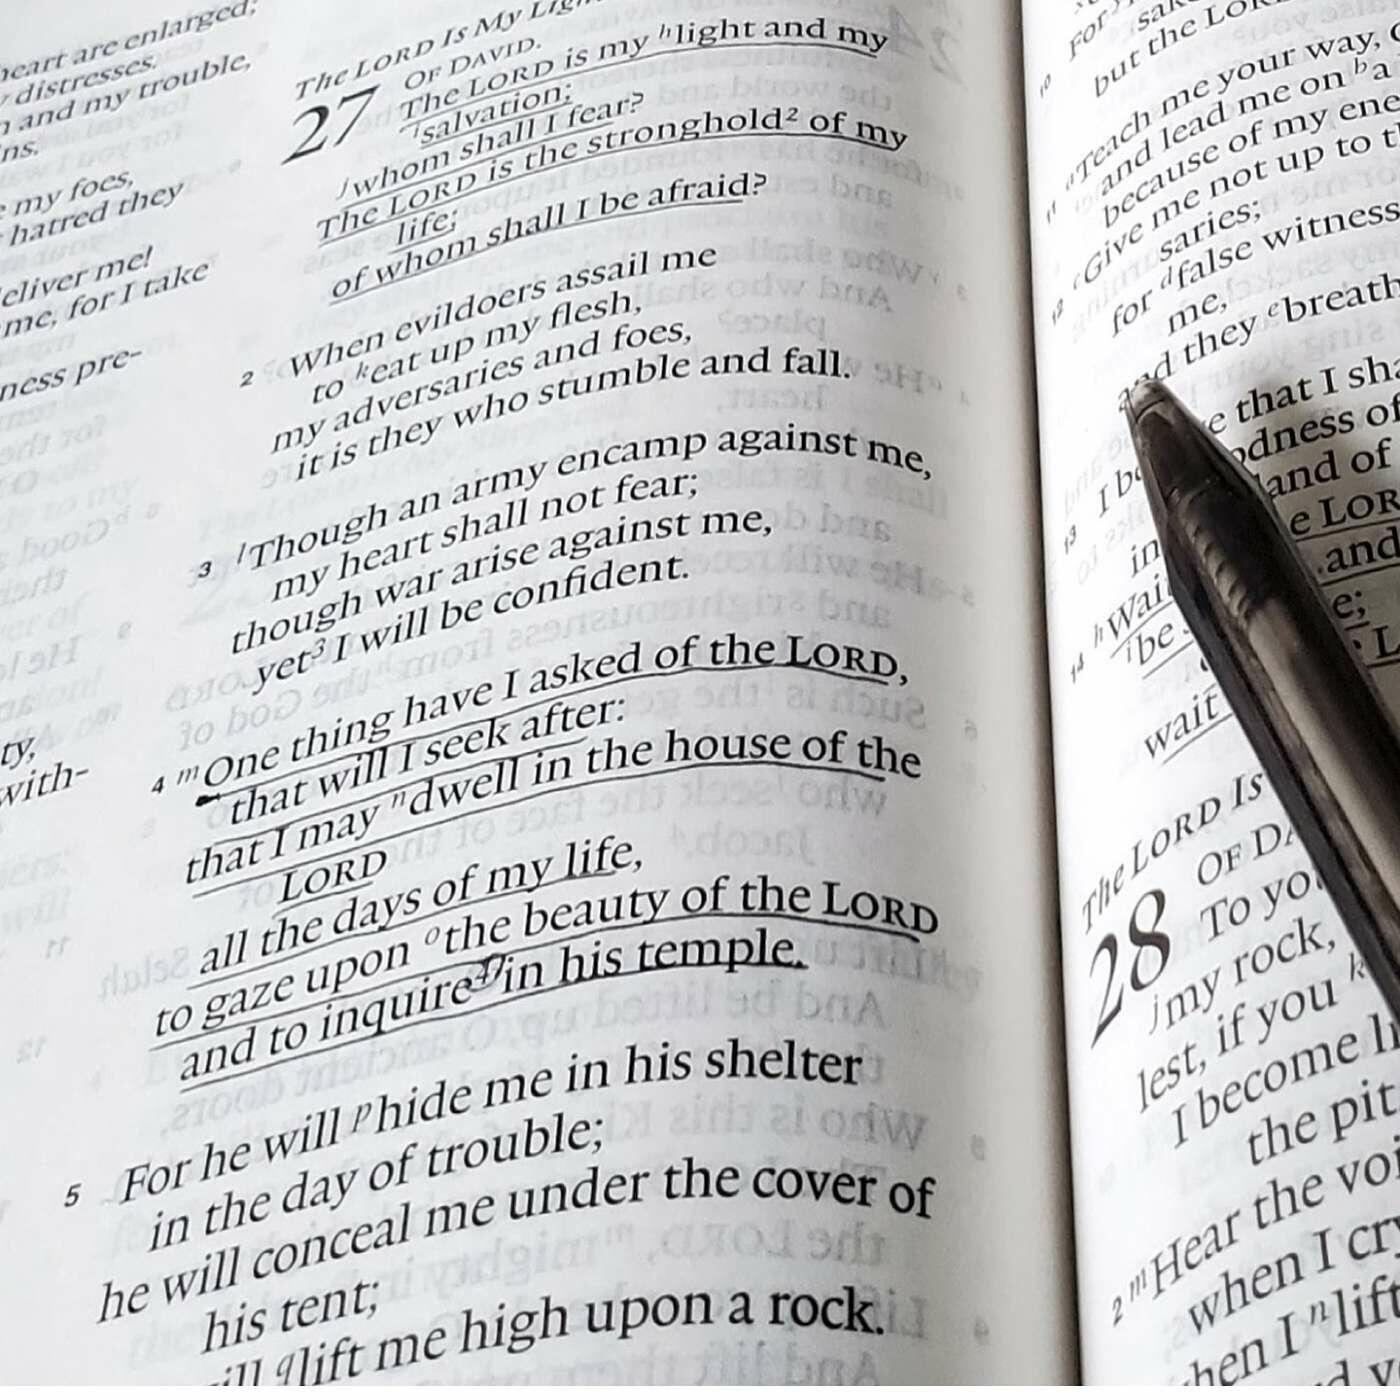 heart are enlarged;
distresses.
and my trouble,
my foes,
hatred they
eliver me!
me, for I take
ness pre-
ty,
with-
The LORD Is My
OF DAVID.
27 The LORD is my hlight and my
isalvation;
jwhom shall I fear?
The LORD is the stronghold2 of my
life;
of whom shall I be afraid?
2 When evildoers assail me
to keat up my flesh,
my adversaries and foes,
it is they who stumble and fall.
3 lThough an army encamp against me,
my heart shall not fear;
though war arise against me,
yet3 I will be confident.
4 mOne thing have I asked of the LORD,
that will I seek after:
that I may ndwell in the house of the
LORD
all the days of my life,
to gaze upon othe beauty of the LORD
and to inquire4 in his temple.
5 For he will phide me in his shelter
in the day of trouble;
he will conceal me under the cover of
his tent;
qlift me high upon a rock.
For
but the LORD
11 aTeach me your way,
and lead me on ba
because of my ene
12 cGive me not up to
saries;
for dfalse witness
me,
and they ebreath
13 I be that I sha
odness of
in land of
14 hWait e LOR
ibe and
e;
wait
The LORD Is
OF DA
28 To you
jmy rock,
lest, if you k
I become li
the pit
2 mHear the vo
when I cry
when I nlift